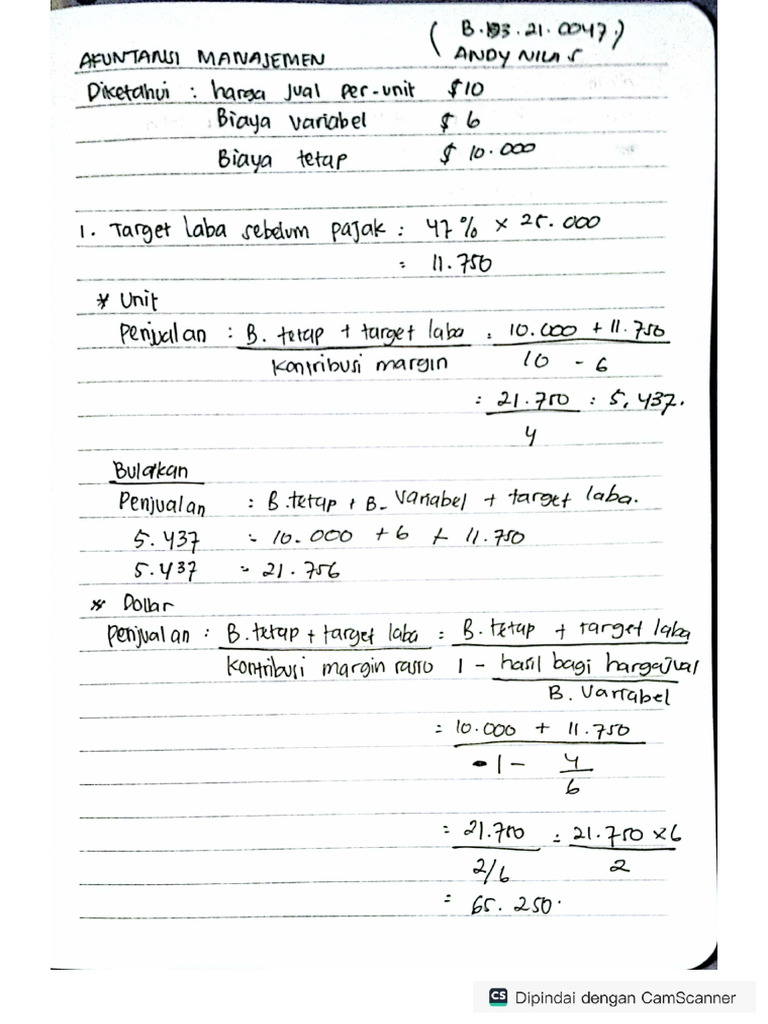 ( B.193.21.0047.)
AKUNTANSI MANAJEMEN ANDY NILA S
Diketahui : harga jual per-unit $10
Biaya variabel $ 6
Biaya tetap $ 10.000
1. Target laba sebelum pajak : 47 % × 25.000
= 11.750
* Unit
Penjualan : B. tetap + target laba = 10.000 + 11.750
Kontribusi margin 10 - 6
= 21.750 = 5.437.
4
Bulatkan
Penjualan : B.tetap + B. Variabel + target laba.
5.437 = 10.000 + 6 + 11.750
5.437 = 21.756
* Dollar
Penjualan : B.tetap + target laba = B.tetap + target laba
kontribusi margin rasio 1 - hasil bagi harga jual
B. Variabel
= 10.000 + 11.750
1 - 4
6
= 21.750 = 21.750 × 6
2/6 2
= 65.250.
CS Dipindai dengan CamScanner